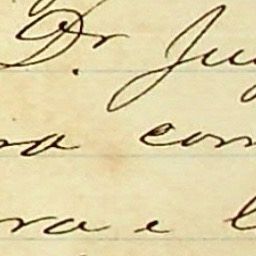 Dr Ju
ra com
ra e l